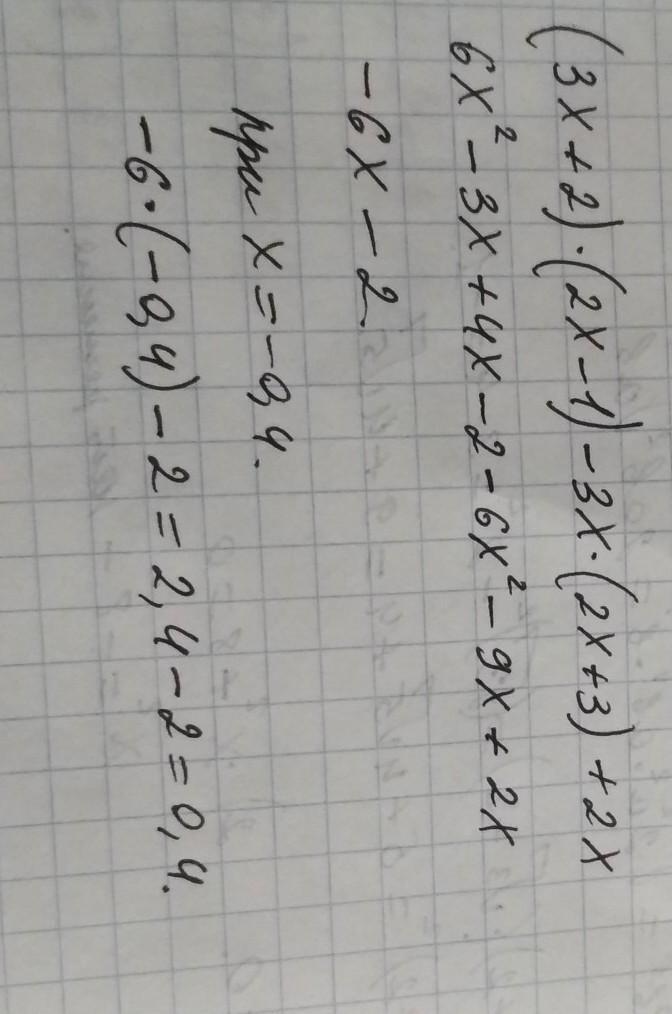 (3x+2)·(2x-1)-3x·(2x+3)+2x
6x²-3x+4x-2-6x²-9x+2x
-6x-2.
при x=-0,4.
-6·(-0,4)-2=2,4-2=0,4.